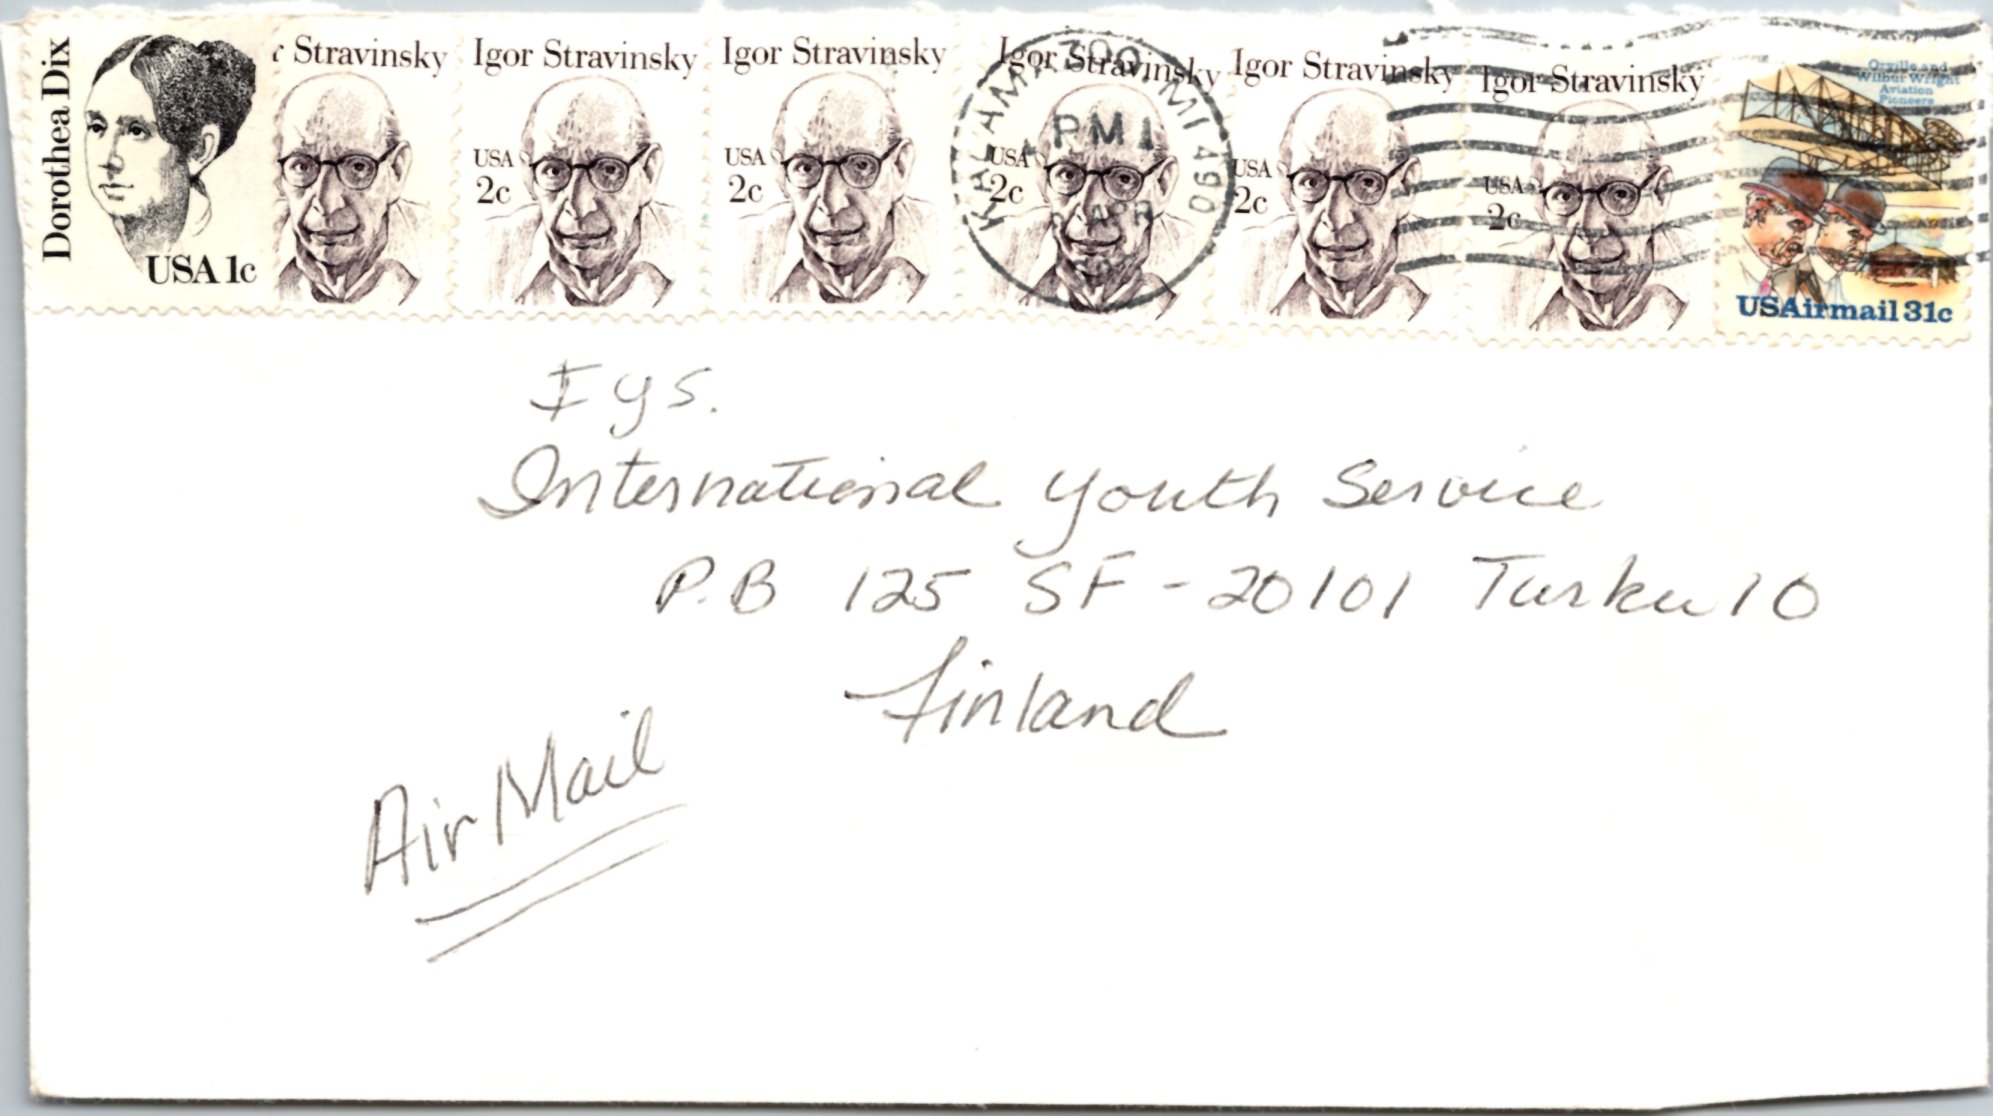 Dorothea Dix
USA 1c
r Stravinsky
Igor Stravinsky
USA
2c
Igor Stravinsky
USA
2c
Igor Stravinsky
USA
2c
Igor Stravinsky
USA
2c
Igor Stravinsky
USA
2c
Orville and
Wilbur Wright
Aviation
Pioneers
USAirmail 31c
KALAMAZOO MI 490
PM 1
APR
Iys.
International Youth Service
P.B 125 SF-20101 Turku 10
Finland
Air Mail